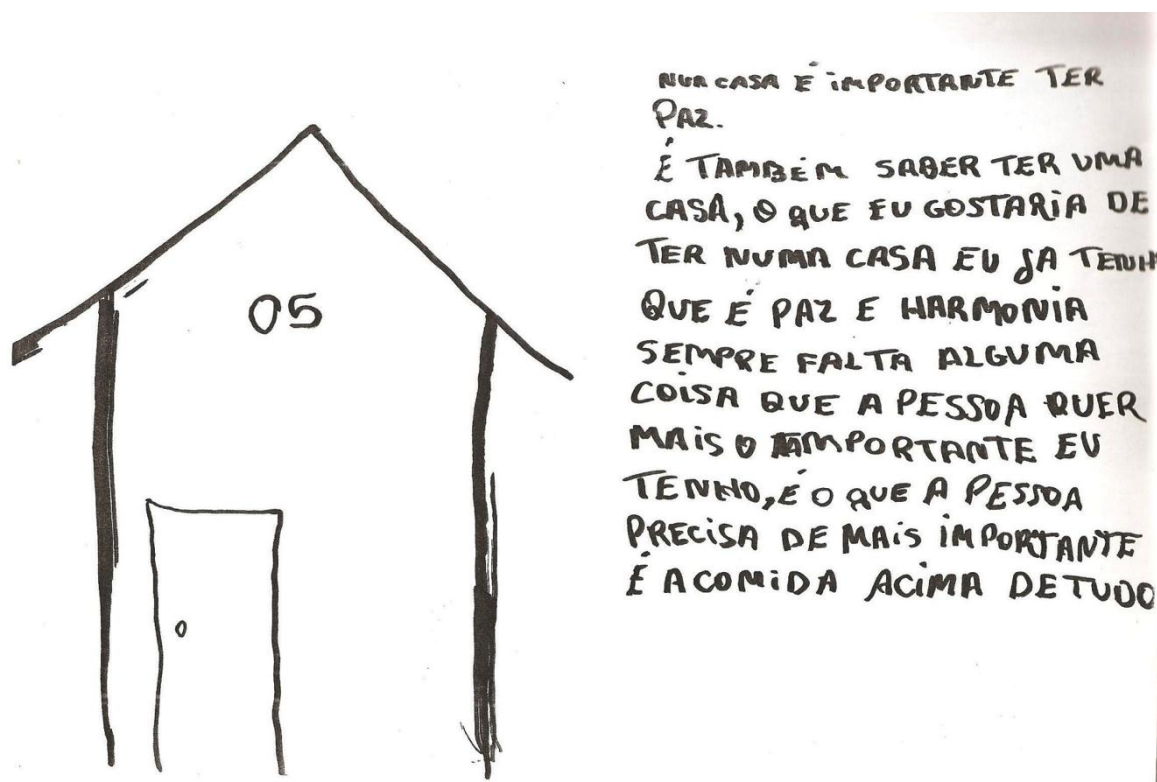 05
NUMA CASA É IMPORTANTE TER
PAZ.
É TAMBÉM SABER TER UMA
CASA, O QUE EU GOSTARIA DE
TER NUMA CASA EU JA TENH
QUE É PAZ E HARMONIA
SEMPRE FALTA ALGUMA
COISA QUE A PESSOA QUER
MAIS O IMPORTANTE EU
TENHO, É O QUE A PESSOA
PRECISA DE MAIS IMPORTANTE
É A COMIDA ACIMA DE TUDO